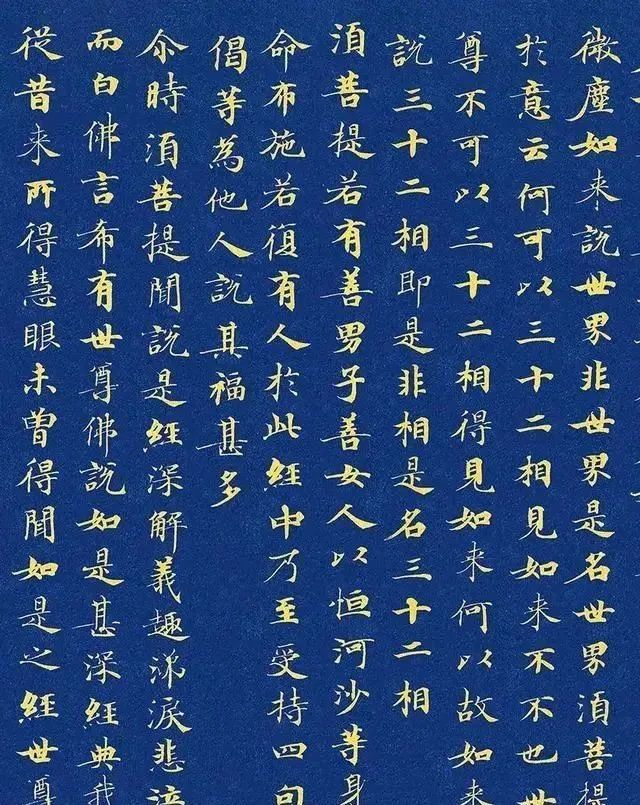 微塵如来說世界非世界是名世界須菩提
於意云何可以三十二相見如来不不也世
尊不可以三十二相得見如来何以故如来
說三十二相即是非相是名三十二相
須菩提若有善男子善女人以恒河沙等身
命布施若復有人於此經中乃至受持四句
偈等為他人說其福甚多
尒時須菩提聞說是經深解義趣涕淚悲泣
而白佛言希有世尊佛說如是甚深經典我
從昔来所得慧眼未曾得聞如是之經世尊